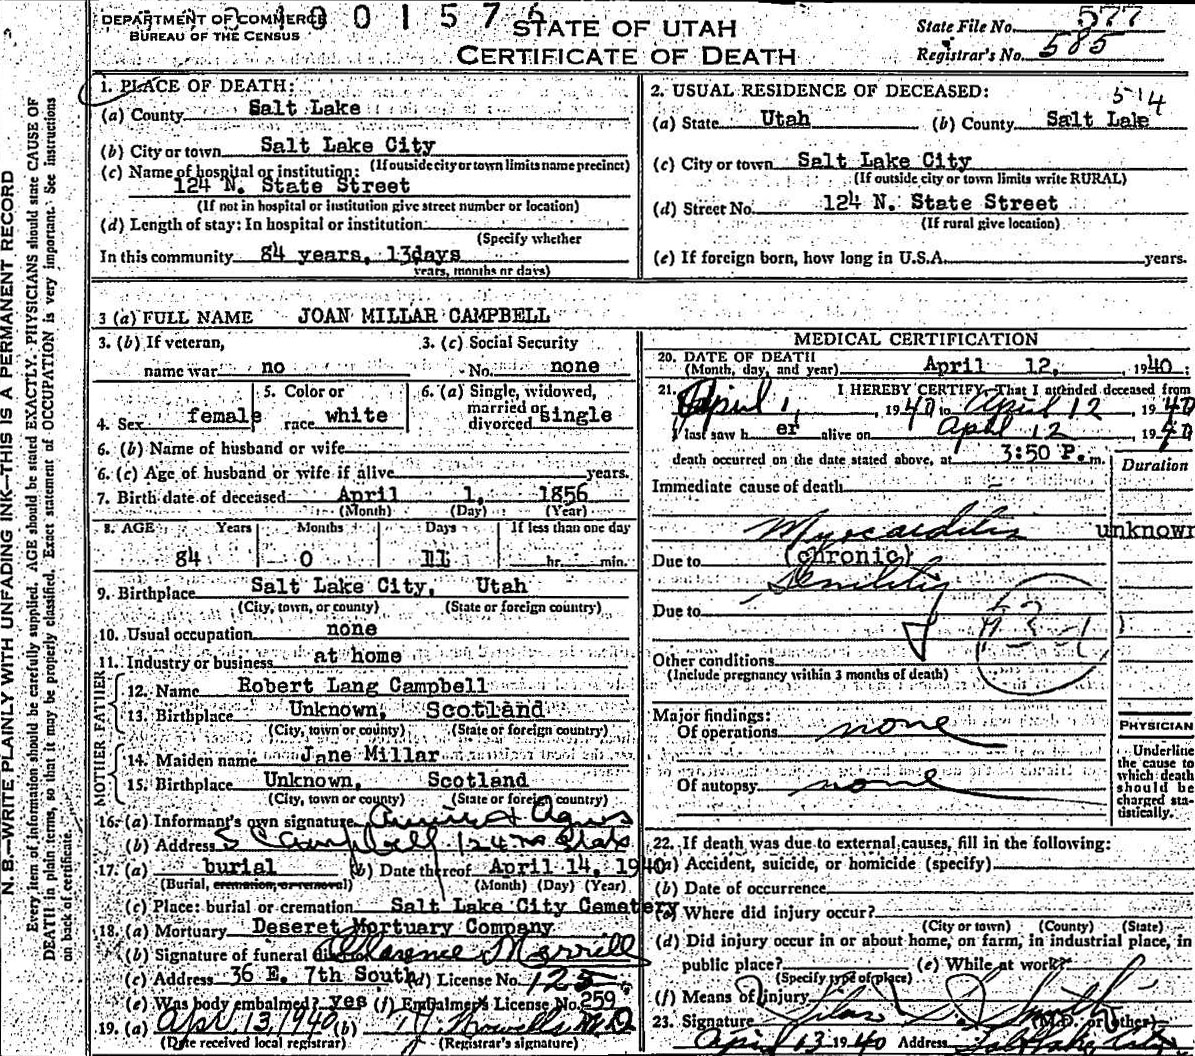 DEPARTMENT OF COMMERCE
BUREAU OF THE CENSUS
001576
STATE OF UTAH
CERTIFICATE OF DEATH
State File No. 577
Registrar's No. 585
N. B.—WRITE PLAINLY WITH UNFADING INK—THIS IS A PERMANENT RECORD
Every item of information should be carefully supplied. AGE should be stated EXACTLY. PHYSICIANS should state CAUSE OF
DEATH in plain terms, so that it may be properly classified. Exact statement of OCCUPATION is very important. See instructions
on back of certificate.
1. PLACE OF DEATH:
(a) County Salt Lake
(b) City or town Salt Lake City
(If outside city or town limits name precinct)
(c) Name of hospital or institution:
124 N. State Street
(If not in hospital or institution give street number or location)
(d) Length of stay: In hospital or institution
(Specify whether
In this community 84 years, 13days
years, months or days)
2. USUAL RESIDENCE OF DECEASED:
5-14
(a) State Utah (b) County Salt Lake
(c) City or town Salt Lake City
(If outside city or town limits write RURAL)
(d) Street No. 124 N. State Street
(If rural give location)
(e) If foreign born, how long in U.S.A. years.
3 (a) FULL NAME JOAN MILLAR CAMPBELL
3. (b) If veteran,
name war no
3. (c) Social Security
No. none
4. Sex female
5. Color or
race white
6. (a) Single, widowed,
married or
divorced single
6. (b) Name of husband or wife
6. (c) Age of husband or wife if alive years.
7. Birth date of deceased April 1, 1856
(Month) (Day) (Year)
8. AGE Years Months Days If less than one day
84 0 11 hr. min.
9. Birthplace Salt Lake City, Utah
(City, town, or county) (State or foreign country)
10. Usual occupation none
11. Industry or business at home
FATHER
12. Name Robert Lang Campbell
13. Birthplace Unknown, Scotland
(City, town or county) (State or foreign country)
MOTHER
14. Maiden name Jane Millar
15. Birthplace Unknown, Scotland
(City, town or county) (State or foreign country)
16. (a) Informant's own signature Agnes
(b) Address S Campbell 124 No State
17. (a) burial (b) Date thereof April 14, 1940
(Burial, cremation, or removal) (Month) (Day) (Year)
(c) Place: burial or cremation Salt Lake City Cemetery
18. (a) Mortuary Deseret Mortuary Company
(b) Signature of funeral director Clarence Merrill
(c) Address 36 E. 7th South (d) License No. 125
(e) Was body embalmed? yes (f) Embalmer's License No. 259
19. (a) Apr. 13, 1940 (b) Howells M.D
(Date received local registrar) (Registrar's signature)
MEDICAL CERTIFICATION
20. DATE OF DEATH
(Month, day, and year) April 12, 1940
21. I HEREBY CERTIFY, That I attended deceased from
April 1, 1940 to April 12 1940
I last saw her alive on April 12 1940
death occurred on the date stated above, at 3:50 P. m.
Duration
Immediate cause of death
Myocarditis unknown
Due to (chronic)
Senility
Due to
Other conditions
(Include pregnancy within 3 months of death)
Major findings:
Of operations none
Of autopsy none
PHYSICIAN
Underline
the cause to
which death
should be
charged sta-
tistically.
22. If death was due to external causes, fill in the following:
(a) Accident, suicide, or homicide (specify)
(b) Date of occurrence
(c) Where did injury occur?
(City or town) (County) (State)
(d) Did injury occur in or about home, on farm, in industrial place, in
public place? (e) While at work?
(Specify type of place)
(f) Means of injury
23. Signature Silas S. Smith (M.D. or other)
April 13 1940 Address Salt Lake City